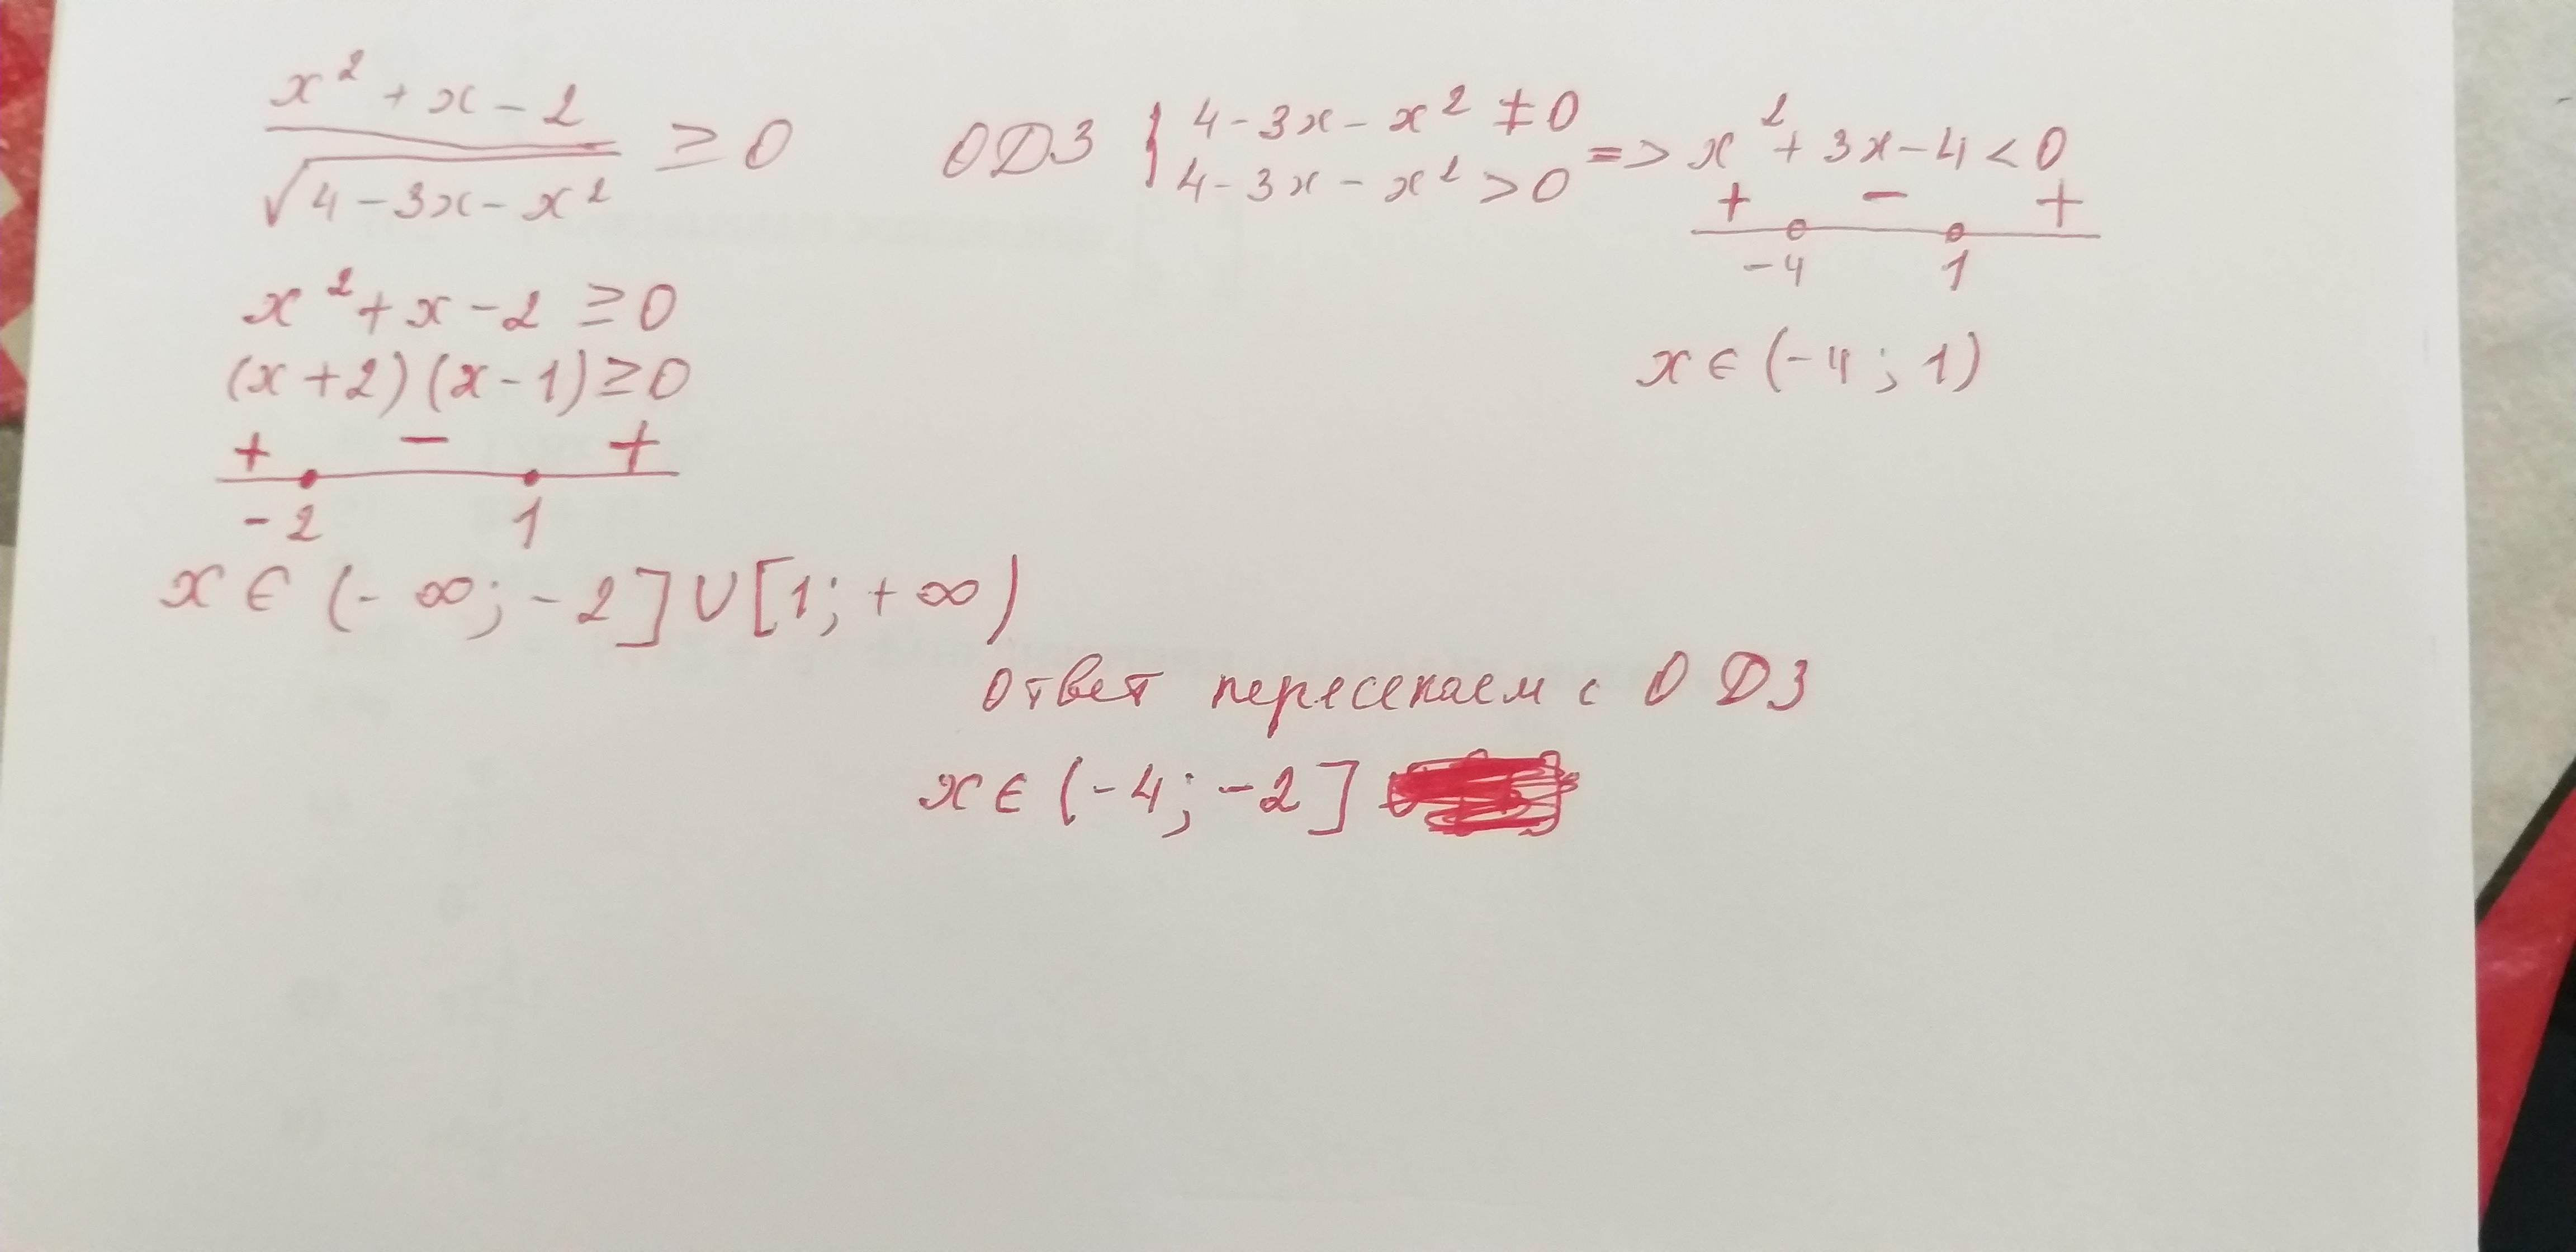 (x² + x - 2) / √(4 - 3x - x²) ≥ 0
ОДЗ { 4 - 3x - x² ≠ 0
4 - 3x - x² > 0 => x² + 3x - 4 < 0
+ - +
-4 1
x ∈ (-4; 1)
x² + x - 2 ≥ 0
(x + 2)(x - 1) ≥ 0
+ - +
-2 1
x ∈ (-∞; -2] ∪ [1; +∞)
Ответ пересекаем с ОДЗ
x ∈ (-4; -2]